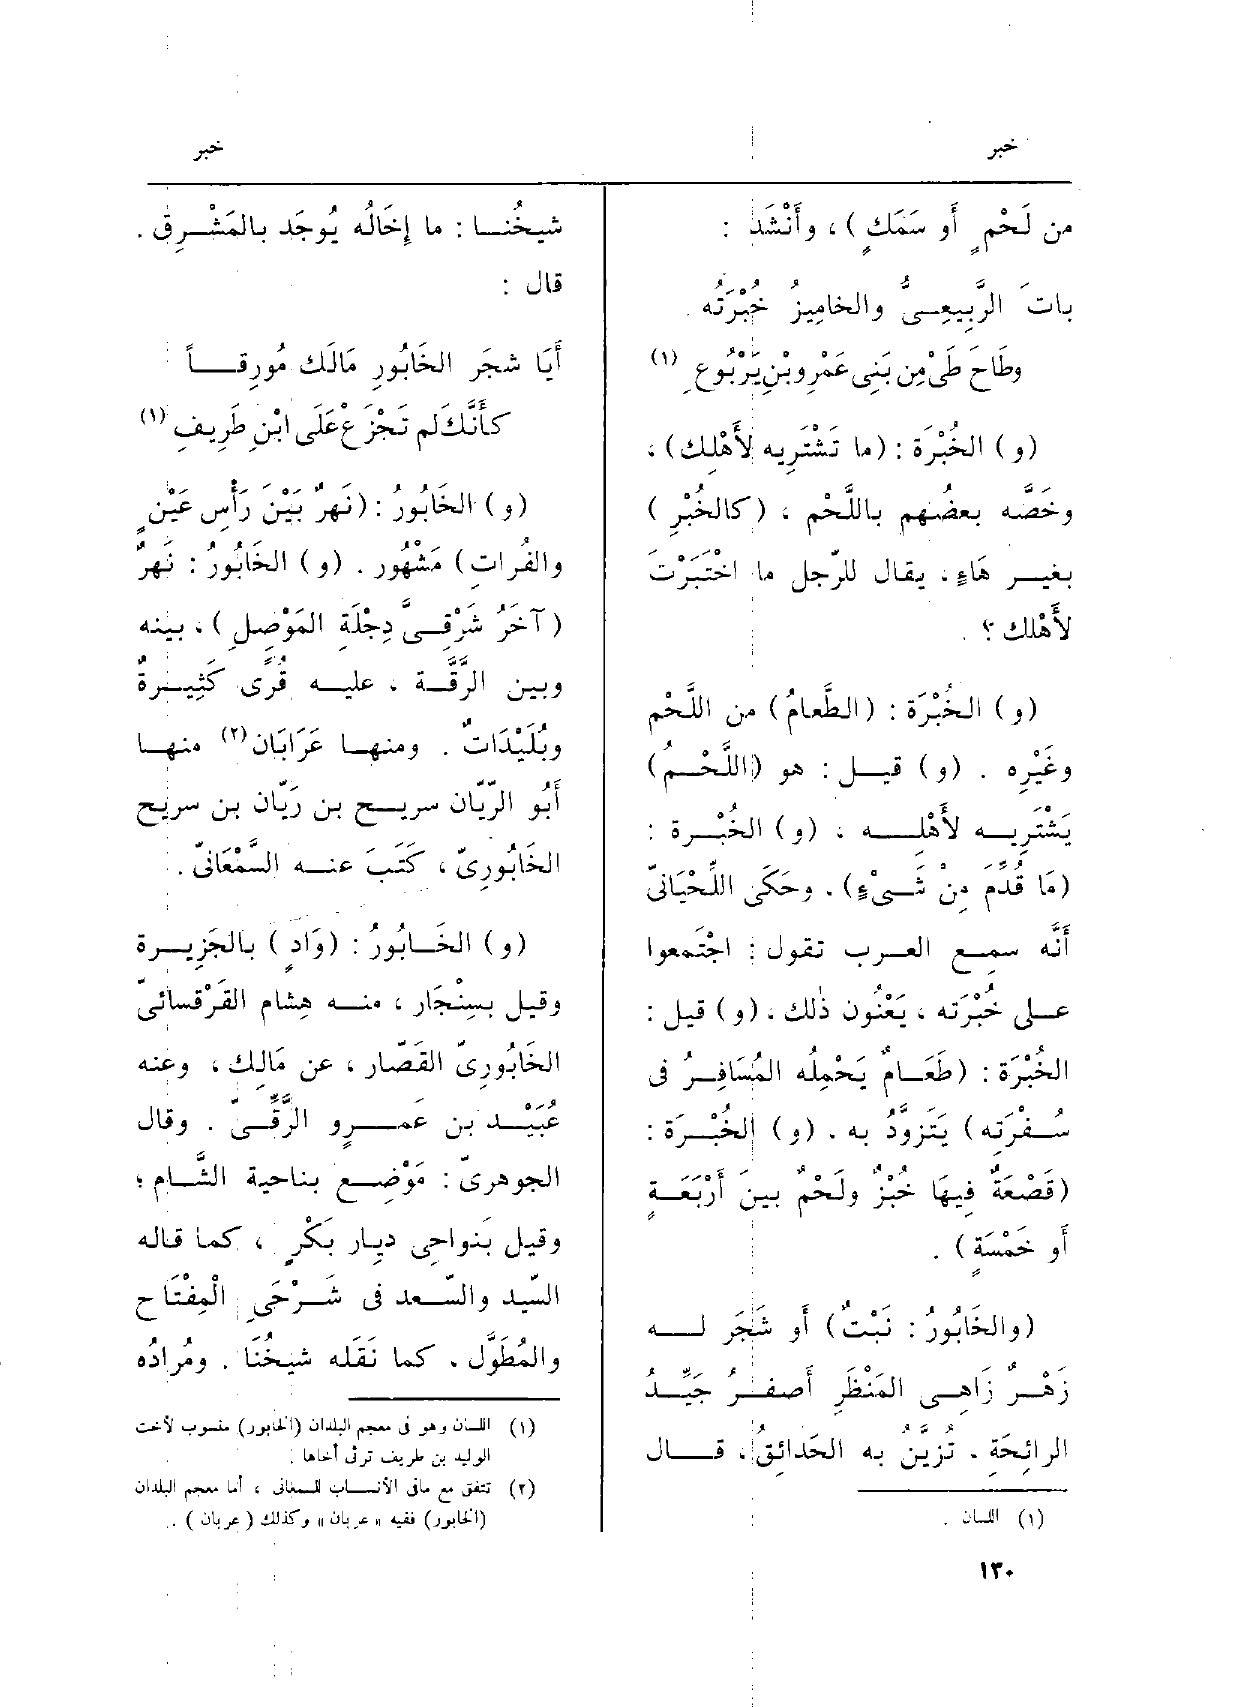 خبر
خبر
من لَحْمٍ أو سَمَكٍ) ، وأَنْشَدَ :
باتَ الرَّبِيعِىُّ والخامِيزُ خُبْرَتُه
وطَاحَ طَىْ مِن بَنِى عَمْرِو بْنِ يَرْبُوعِ (١)
(و) الخُبْرَة : (ما تَشْتَرِيه لأَهْلِك) ،
وخَصَّه بعضُهم باللَّحْم ، (كالخُبْرِ)
بغيـر هَاءٍ ، يقال للرّجل ما اخْتَبَرْتَ
لأَهْلك ؟ .
(و) الخُبْرَة : (الطَّعامُ) من اللَّحْم
وغَيْرِه . (و) قيـل : هو (اللَّحْـمُ)
يَشْتَرِيـه لأَهْلـه ، (و) الخُبْـرة :
(مَا قُدِّمَ مِنْ شَـىْءٍ) . وحَكَى اللِّحْيَانىّ
أَنَّه سمِـع العـرب تقول : اجْتَمعوا
علـى خُبْرَتِه ، يَعْنُون ذٰلك ، (و) قيل :
الخُبْرَة : (طَعَـامٌ يَحْمِلُه المُسَافِـرُ فى
سُـفْرَتِه) يَتَزوَّدُ به . (و) الخُبْـرَة :
(قَصْعَةٌ فِيهَا خُبْزٌ ولَحْمٌ بينَ أَرْبَعَـةٍ
أو خَمْسَةٍ) .
(والخَابُورُ : نَبْتٌ) أو شَجَر لـه
زَهْـرٌ زَاهِـى المَنْظَرِ أَصفـرُ جَيِّـدُ
الرائحَةِ . تُزَيَّنُ به الحَدائقُ ، قـال
(١) اللسان .
شيخُنـا : ما إِخَالُه يُوجَد بالمَشْـرِق .
قال :
أَيَا شجَر الخَابُورِ مَالَك مُورِقـاً
كأَنَّكَ لم تَجْزَعْ عَلَى ابْنِ طَرِيفِ (١)
(و) الخَابُورُ : (نَهرٌ بَيْنَ رَأْسِ عَيْنٍ
والفُراتِ) مَشْهُور . (و) الخَابُورُ : نَهرٌ
(آخَرُ شَرْقِـىَّ دِجْلَةِ المَوْصِلِ) ، بينه
وبين الرَّقَّـة ، عليـه قُرًى كَثِيـرةٌ
وبُلَيْدَاتٌ . ومنهـا عَرَابَان(٢) منهـا
أَبُو الرّيّان سريـح بن رَيّان بن سريح
الخَابُورِىّ ، كَتَبَ عنـه السَّمْعَانىّ .
(و) الخَـابُورُ : (وَادٍ) بالجَزِيـرة
وقيل بسِنْجَار ، منـه هِشام القَرْقسائىّ
الخَابُورِىّ القَصّار ، عن مَالِك ، وعنه
عُبَيْـد بن عَمـرو الرَّقِّـىّ . وقال
الجوهرىّ : مَوْضِـع بناحية الشَّـام ؛
وقيل بَنواحِى دِيار بَكْرٍ ، كما قاله
السّيد والسّـعد فى شَـرْحَىِ الْمِفْتَاح
والمُطَوَّل ، كما نَقَلَه شيخُنَا . ومُرادُه
(١) اللسان وهو فى معجم البلدان (الخابور) منسوب لأخت
الوليد بن طريف ترثى أخاها .
(٢) تتفق مع مافى الأنسـاب للسمعانى ، أما معجم البلدان
(الخابور) ففيه «عربان» وكذلك (عربان) .
١٣٠